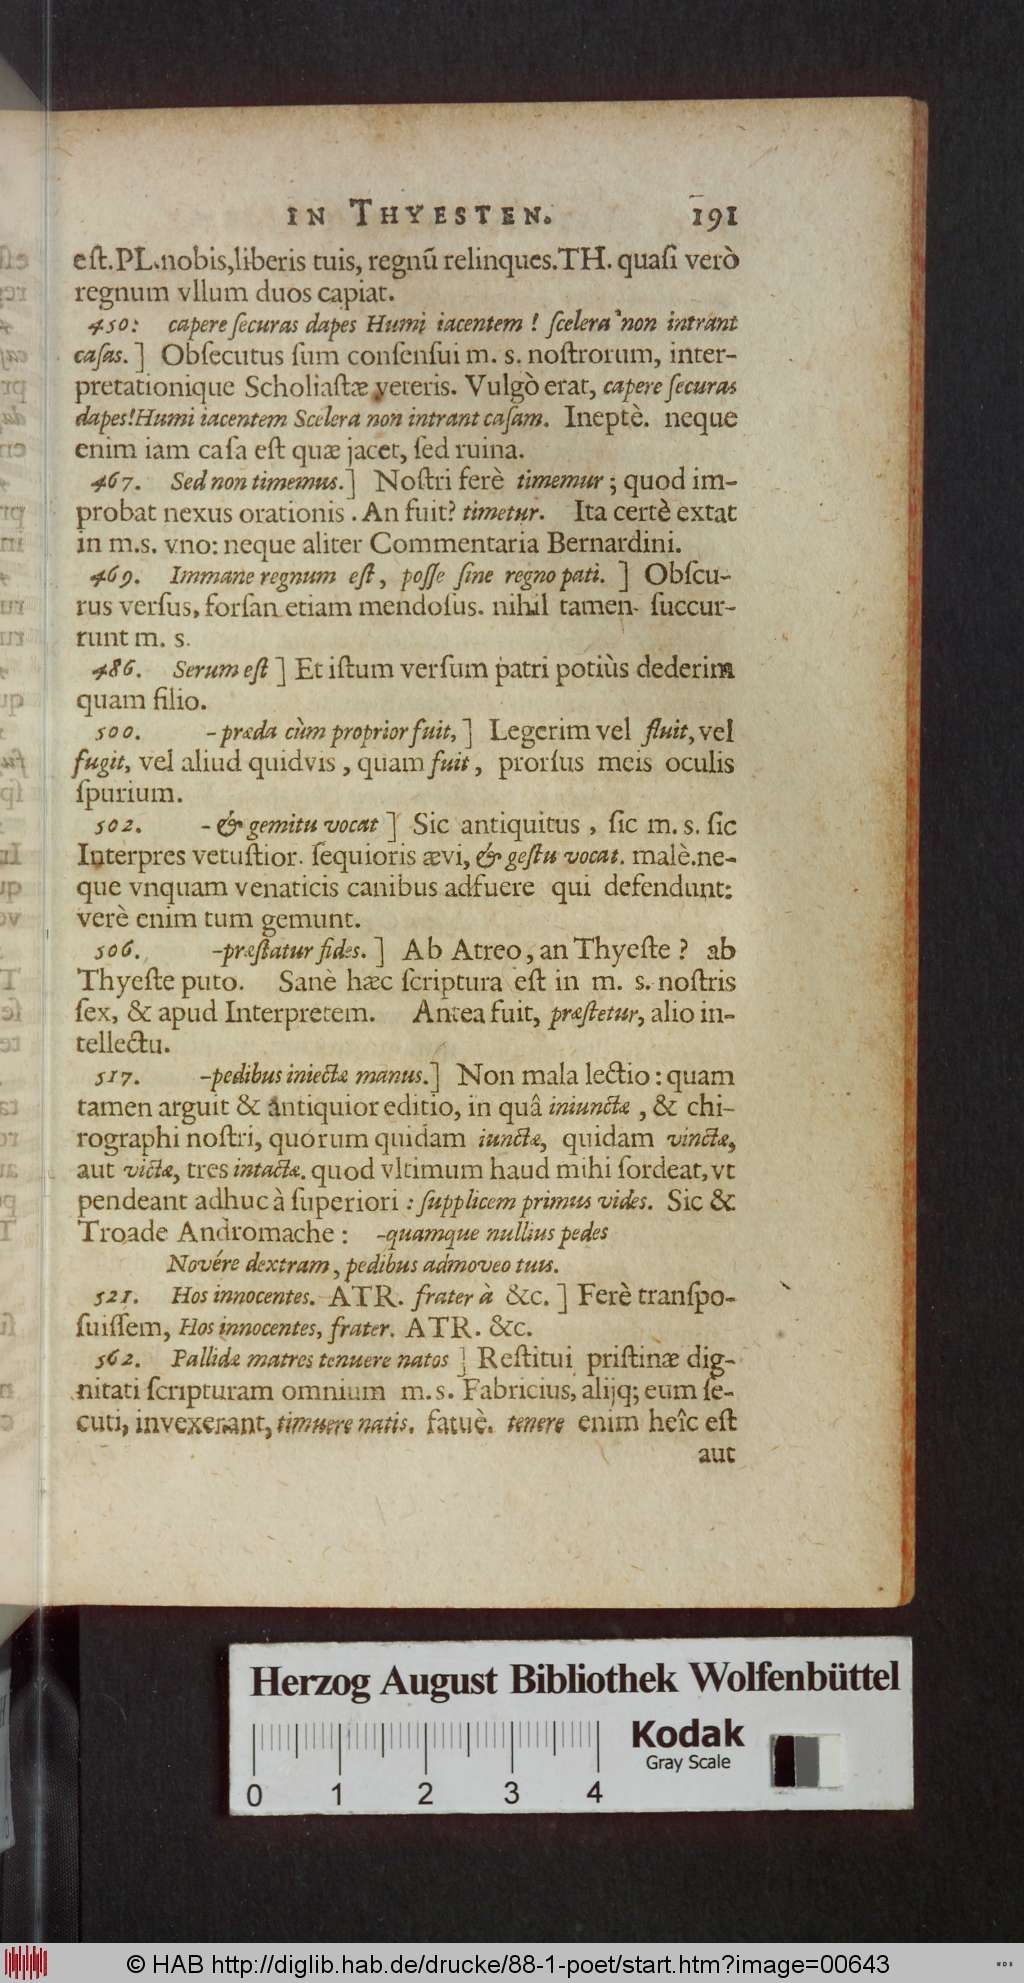 IN THYESTEN. 191
eſt.PL.nobis,liberis tuis, regnũ relinques.TH. quaſi verò
regnum vllum duos capiat.
450: capere ſecuras dapes Humi iacentem ! ſcelera non intrant
caſas. ] Obſecutus ſum conſenſui m. s. noſtrorum, inter-
pretationique Scholiaſtæ veteris. Vulgò erat, capere ſecuras
dapes!Humi iacentem Scelera non intrant caſam. Ineptè. neque
enim iam caſa eſt quæ jacet, ſed ruina.
467. Sed non timemus.] Noſtri ferè timemur ; quod im-
probat nexus orationis . An fuit? timetur. Ita certè extat
in m.s. vno: neque aliter Commentaria Bernardini.
469. Immane regnum eſt, poſſe ſine regno pati. ] Obſcu-
rus verſus, forſan etiam mendoſus. nihil tamen ſuccur-
runt m. s.
486. Serum eſt ] Et iſtum verſum patri potiùs dederim
quam filio.
500. -præda cùm proprior fuit, ] Legerim vel fluit, vel
fugit, vel aliud quidvis , quam fuit , prorſus meis oculis
ſpurium.
502. -& gemitu vocat ] Sic antiquitus , ſic m. s. ſic
Interpres vetuſtior. ſequioris ævi, & geſtu vocat. malè.ne-
que vnquam venaticis canibus adfuere qui defendunt:
verè enim tum gemunt.
506. -præſtatur fides. ] Ab Atreo, an Thyeſte ? ab
Thyeſte puto. Sanè hæc ſcriptura eſt in m. s. noſtris
ſex, & apud Interpretem. Antea fuit, præſtetur, alio in-
tellectu.
517. -pedibus iniectæ manus.] Non mala lectio : quam
tamen arguit & antiquior editio, in quâ iniunctæ , & chi-
rographi noſtri, quorum quidam iunctæ, quidam vinctæ,
aut victæ, tres intactæ. quod vltimum haud mihi ſordeat, vt
pendeant adhuc à ſuperiori : ſupplicem primus vides. Sic &
Troade Andromache : -quamque nullius pedes
Novére dextram, pedibus admoveo tuis.
521. Hos innocentes. ATR. frater à &c. ] Ferè tranſpo-
ſuiſſem, Hos innocentes, frater. ATR. &c.
562. Pallidæ matres tenuere natos ] Reſtitui priſtinæ dig-
nitati ſcripturam omnium m. s. Fabricius, alijq; eum ſe-
cuti, invexerant, timuere natis. fatuè. tenere enim heîc eſt
aut
Herzog August Bibliothek Wolfenbüttel
Kodak
Gray Scale
0 1 2 3 4
© HAB http://diglib.hab.de/drucke/88-1-poet/start.htm?image=00643